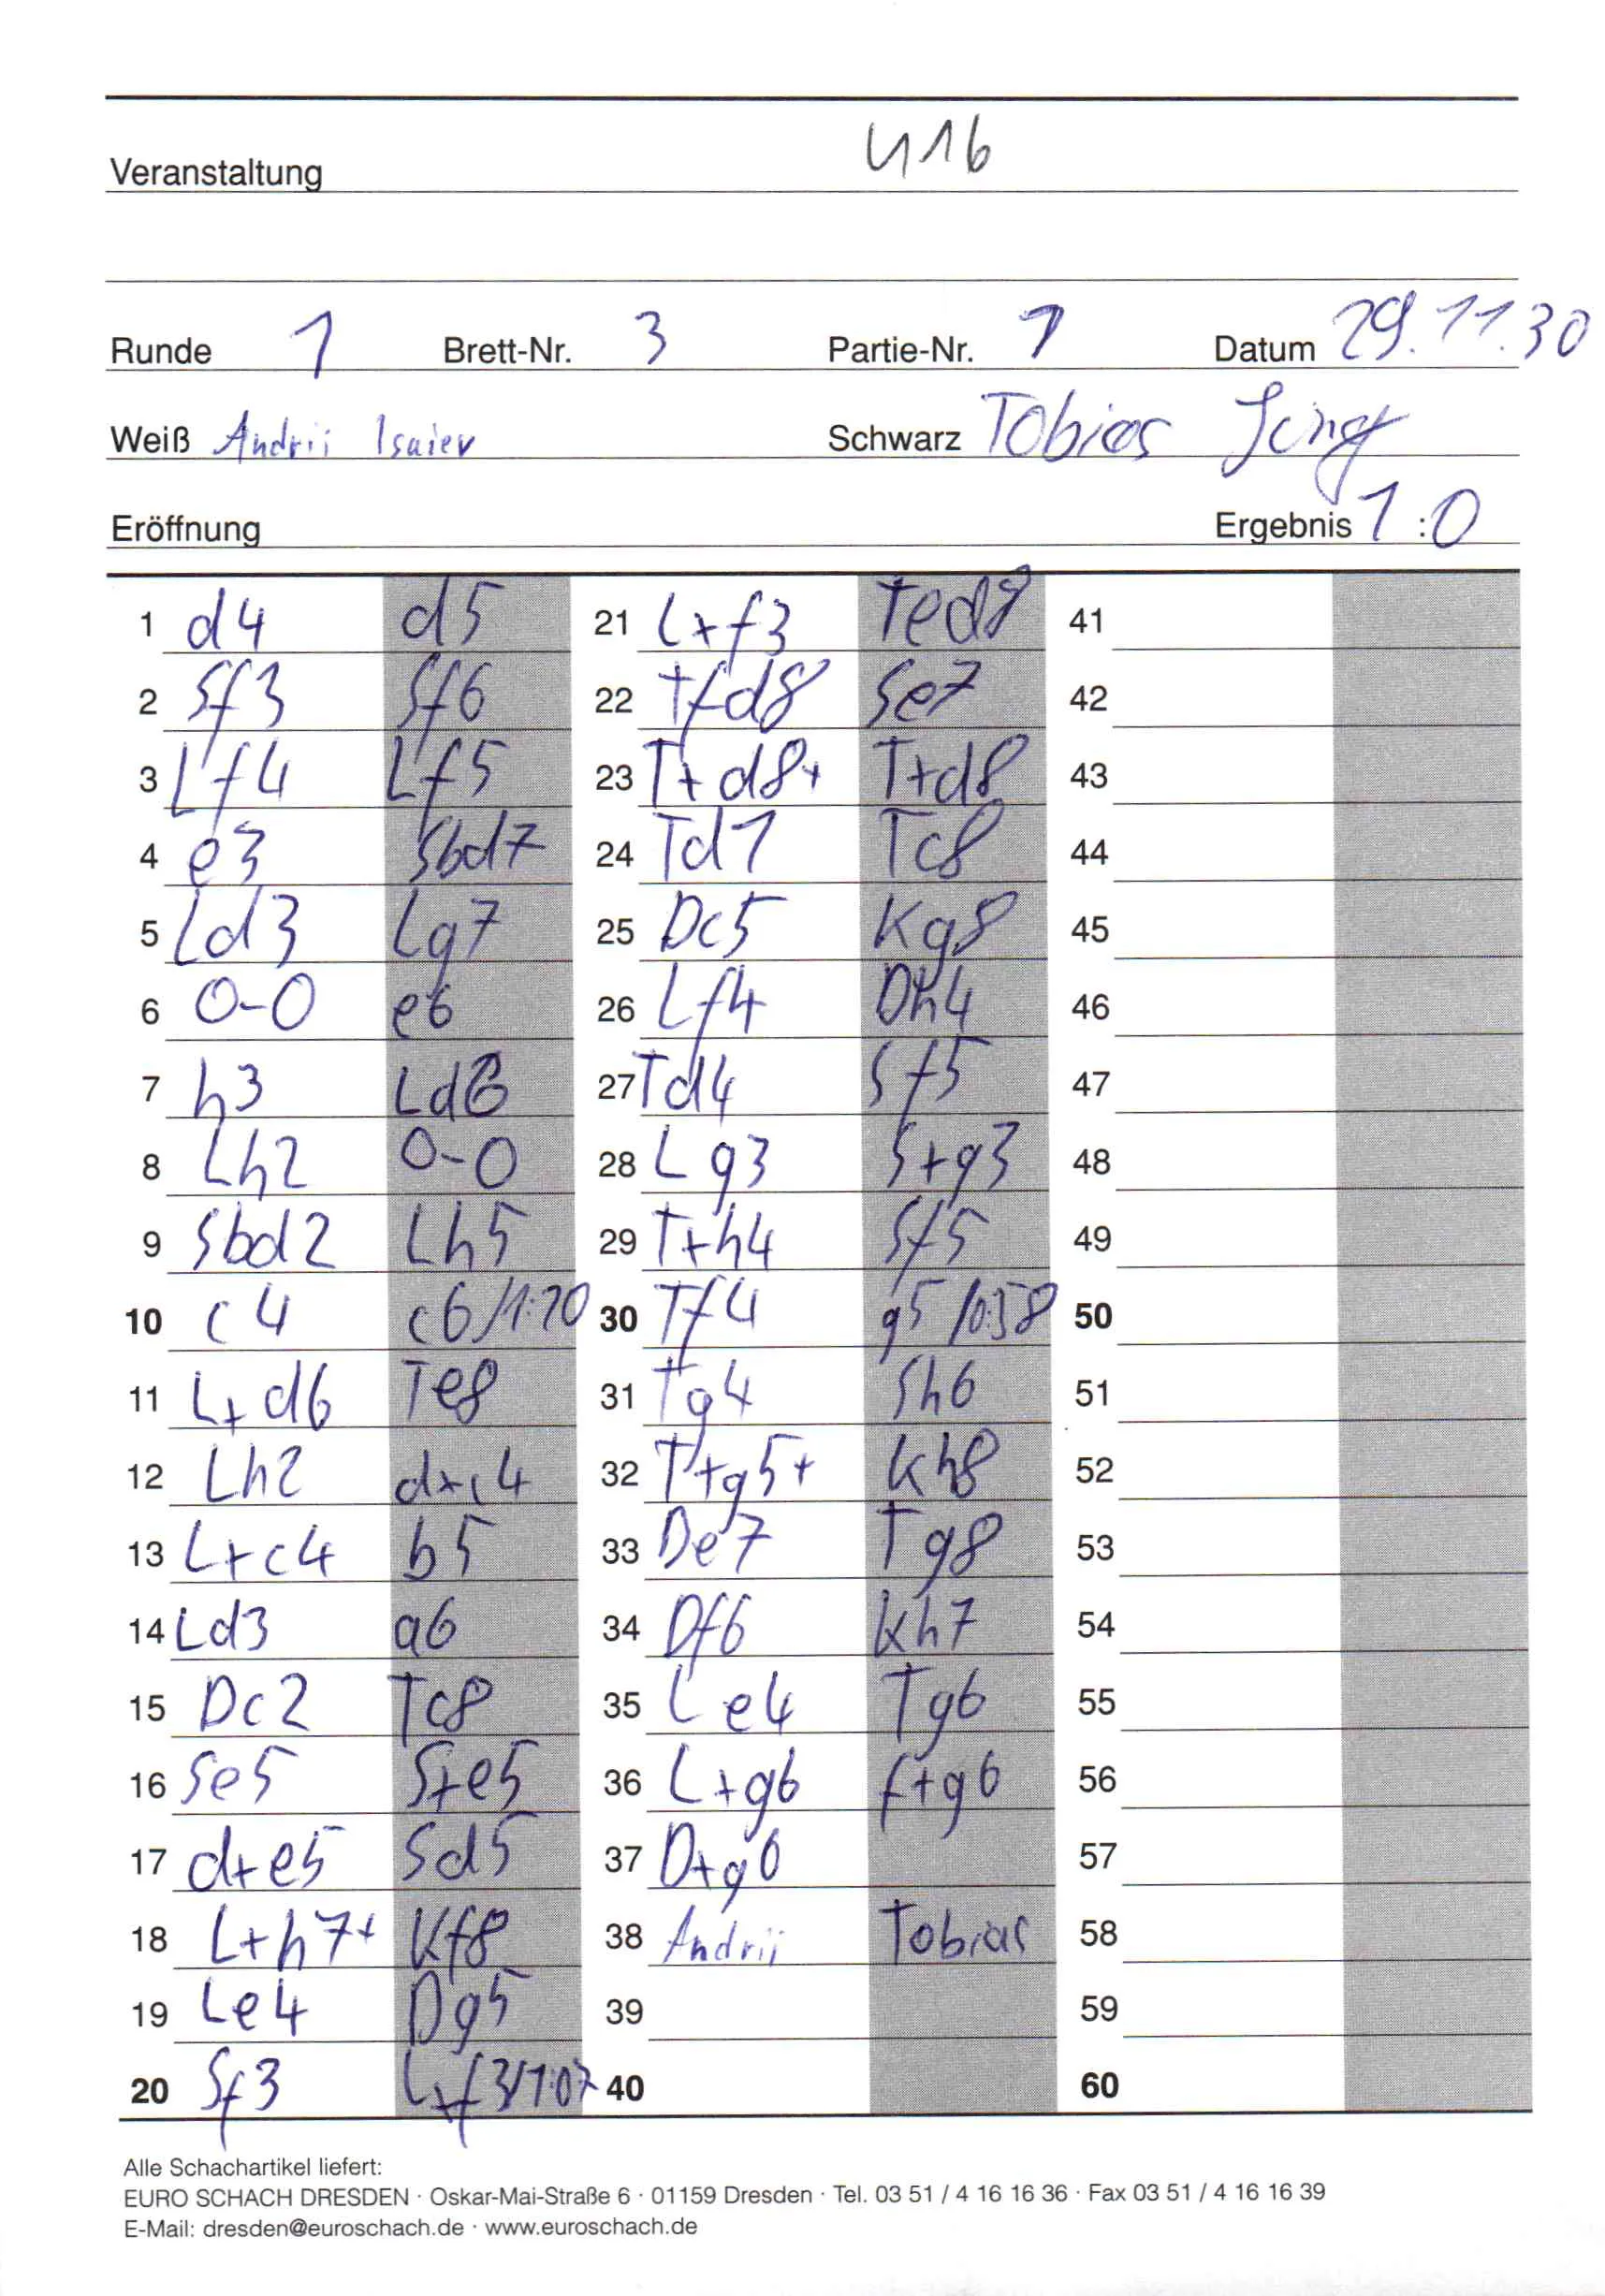 U16
Veranstaltung
Runde 1 Brett-Nr. 3 Partie-Nr. 1 Datum 29.11.30
Weiß Andrii Isaiev Schwarz Tobias Jung
Eröffnung Ergebnis 1:0
1 d4 d5 21 L+f3 Ted8 41
2 Sf3 Sf6 22 Tfd8 Se7 42
3 Lf4 Lf5 23 T+d8+ T+d8 43
4 e3 Sbd7 24 Td1 Tc8 44
5 Ld3 Lg7 25 Dc5 Kg8 45
6 0-0 e6 26 Lf4 Dh4 46
7 h3 Ld6 27 Td4 Sf5 47
8 Lh2 0-0 28 Lg3 S+g3 48
9 Sbd2 Lh5 29 T+h4 Sf5 49
10 c4 c6/1:10 30 Tf4 g5/0:58 50
11 L+d6 Te8 31 Tg4 Sh6 51
12 Lh2 d+c4 32 T+g5+ Kh8 52
13 L+c4 b5 33 De7 Tg8 53
14 Ld3 a6 34 Df6 Kh7 54
15 Dc2 Tc8 35 Le4 Tg6 55
16 Se5 S+e5 36 L+g6 f+g6 56
17 d+e5 Sd5 37 D+g6 57
18 L+h7+ Kf8 38 Andrii Tobias 58
19 Le4 Dg5 39 59
20 Sf3 L+f3/1:07 40 60
Alle Schachartikel liefert:
EURO SCHACH DRESDEN · Oskar-Mai-Straße 6 · 01159 Dresden · Tel. 03 51 / 4 16 16 36 · Fax 03 51 / 4 16 16 39
E-Mail: dresden@euroschach.de · www.euroschach.de